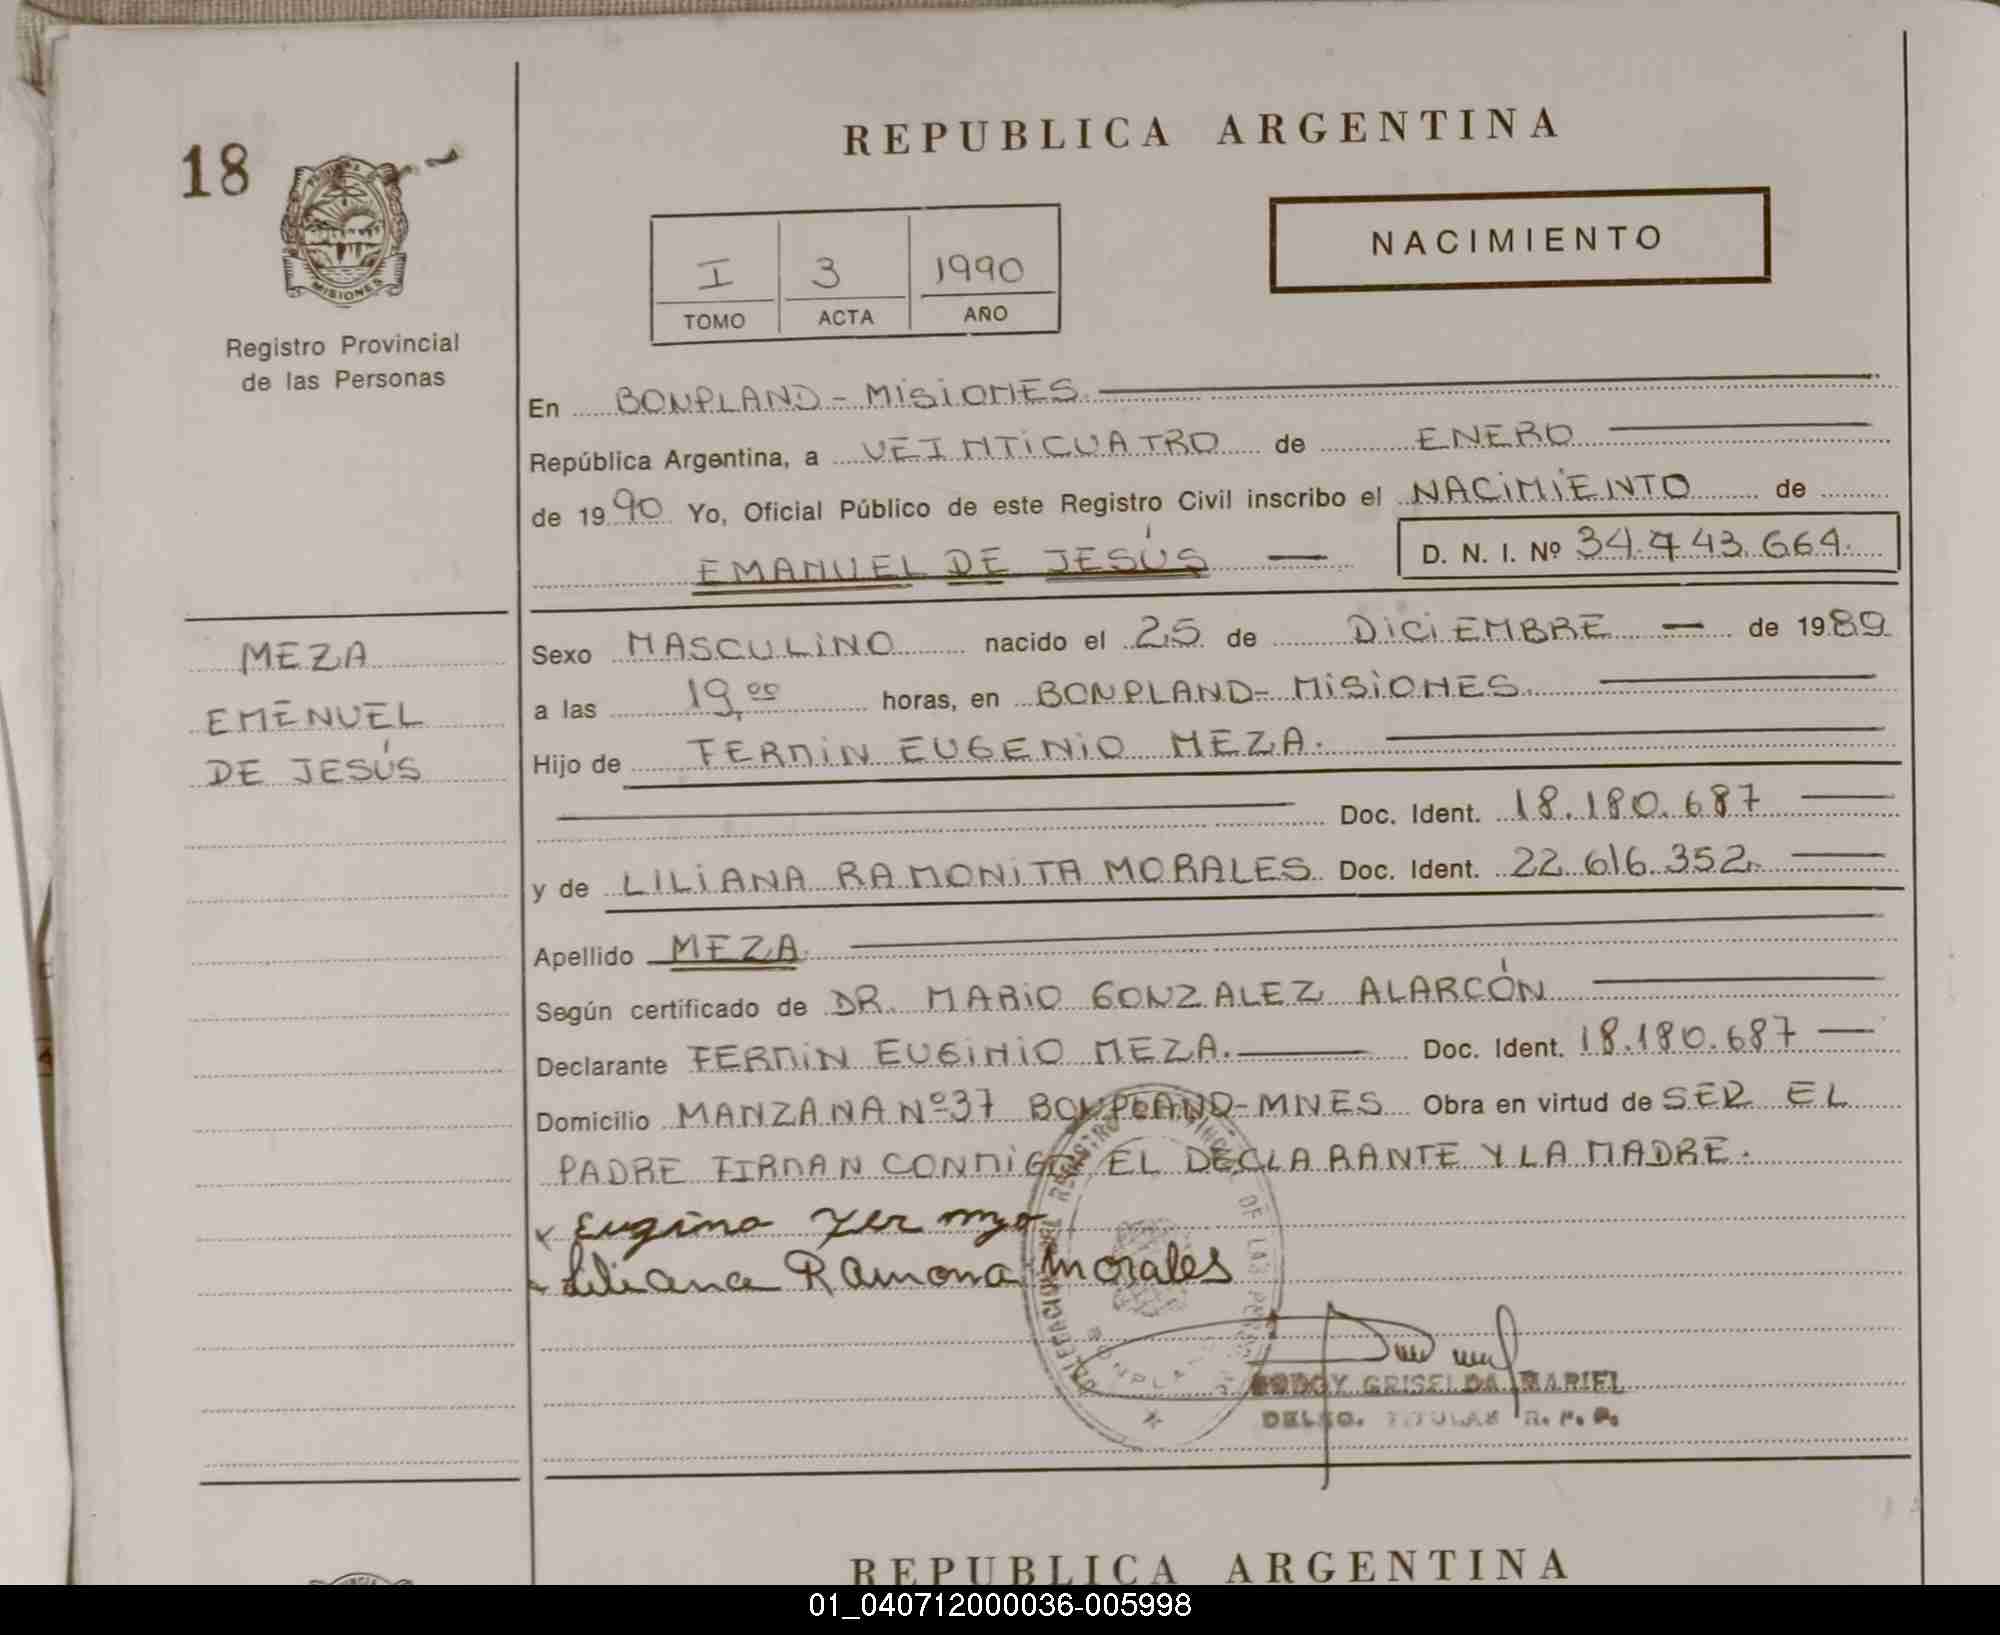 REPUBLICA ARGENTINA
18
MISIONES
Registro Provincial
de las Personas
NACIMIENTO
I 3 1990
TOMO ACTA AÑO
En BONPLAND - MISIONES
República Argentina, a VEINTICUATRO de ENERO
de 1990 Yo, Oficial Público de este Registro Civil inscribo el NACIMIENTO de
EMANUEL DE JESÚS
D. N. I. Nº 34.743.664.
MEZA
EMENUEL
DE JESÚS
Sexo MASCULINO nacido el 25 de DICIEMBRE de 1989
a las 19,00 horas, en BONPLAND - MISIONES
Hijo de FERMIN EUGENIO MEZA.
Doc. Ident. 18.180.687
y de LILIANA RAMONITA MORALES Doc. Ident. 22.616.352.
Apellido MEZA.
Según certificado de DR. MARIO GONZALEZ ALARCÓN
Declarante FERMIN EUGINIO MEZA. Doc. Ident. 18.180.687
Domicilio MANZANA Nº 37 BONPLAND - MNES Obra en virtud de SER EL
PADRE FIRMAN CONMIGO EL DECLARANTE Y LA MADRE.
Liliana Ramona Morales
GODOY GRISELDA MARIEL
DELEG. TITULAR R. P. P.
REPUBLICA ARGENTINA
01_040712000036-005998